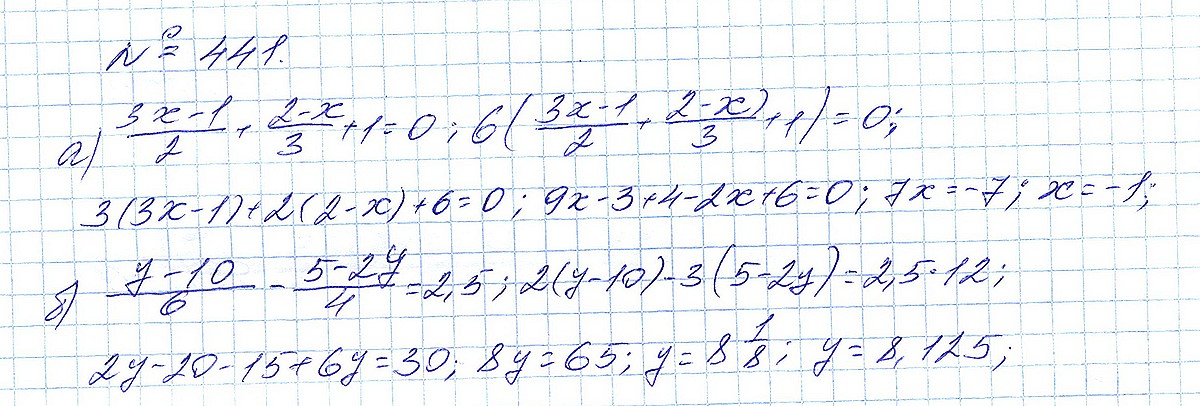 № 441.
а) (3x-1)/2 + (2-x)/3 + 1 = 0; 6((3x-1)/2 + (2-x)/3 + 1) = 0;
3(3x-1)+2(2-x)+6=0; 9x-3+4-2x+6=0; 7x=-7; x=-1;
б) (y-10)/6 - (5-2y)/4 = 2,5; 2(y-10)-3(5-2y)=2,5·12;
2y-20-15+6y=30; 8y=65; y=8 1/8; y=8,125;